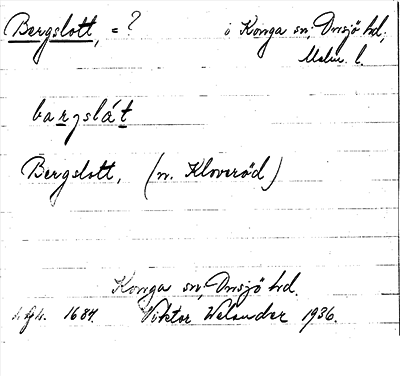 Bergslott, = ? i Konga sn, Onsjö hd,
Malm. l.
bargslát
Bergslott, (n. Kloveröd)
Konga sn, Onsjö hd.
1684. Viktor Welander 1936.